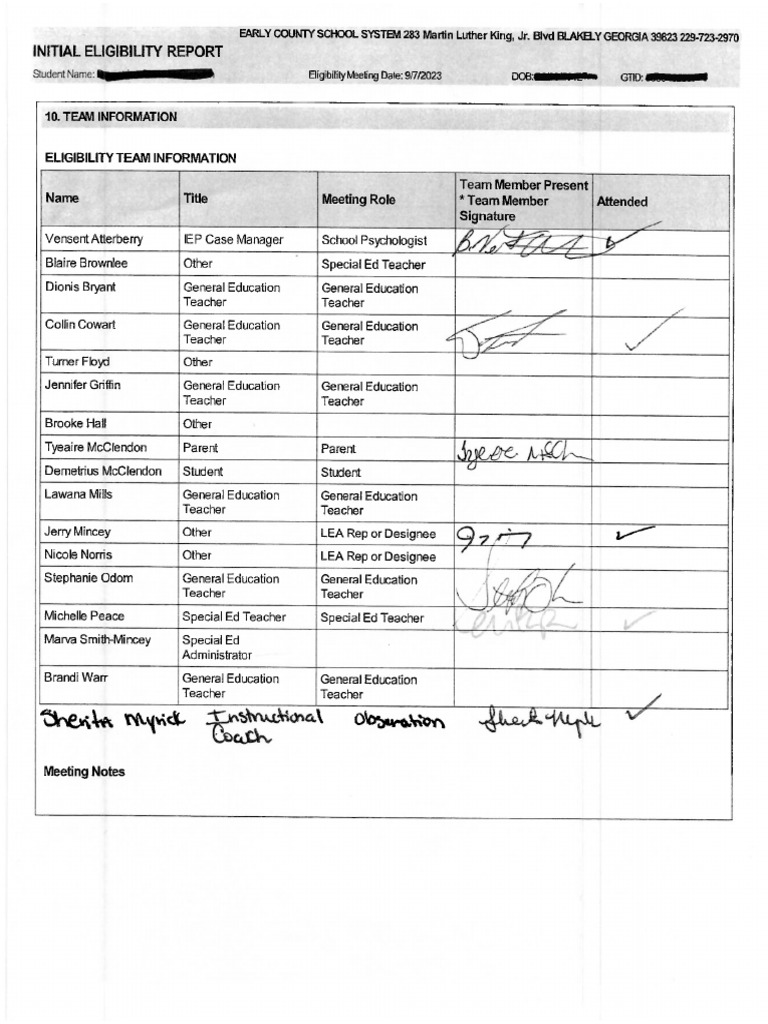 EARLY COUNTY SCHOOL SYSTEM 283 Martin Luther King, Jr. Blvd BLAKELY GEORGIA 39823 229-723-2970
INITIAL ELIGIBILITY REPORT
Student Name: Eligibility Meeting Date: 9/7/2023 DOB: GTID:
10. TEAM INFORMATION
ELIGIBILITY TEAM INFORMATION
Name Title Meeting Role Team Member Present * Team Member Signature Attended
Vensent Atterberry IEP Case Manager School Psychologist
Blaire Brownlee Other Special Ed Teacher
Dionis Bryant General Education Teacher General Education Teacher
Collin Cowart General Education Teacher General Education Teacher
Turner Floyd Other
Jennifer Griffin General Education Teacher General Education Teacher
Brooke Hall Other
Tyeaire McClendon Parent Parent
Demetrius McClendon Student Student
Lawana Mills General Education Teacher General Education Teacher
Jerry Mincey Other LEA Rep or Designee
Nicole Norris Other LEA Rep or Designee
Stephanie Odom General Education Teacher General Education Teacher
Michelle Peace Special Ed Teacher Special Ed Teacher
Marva Smith-Mincey Special Ed Administrator
Brandi Warr General Education Teacher General Education Teacher
Sherita Myrick Instructional Coach Observation
Meeting Notes